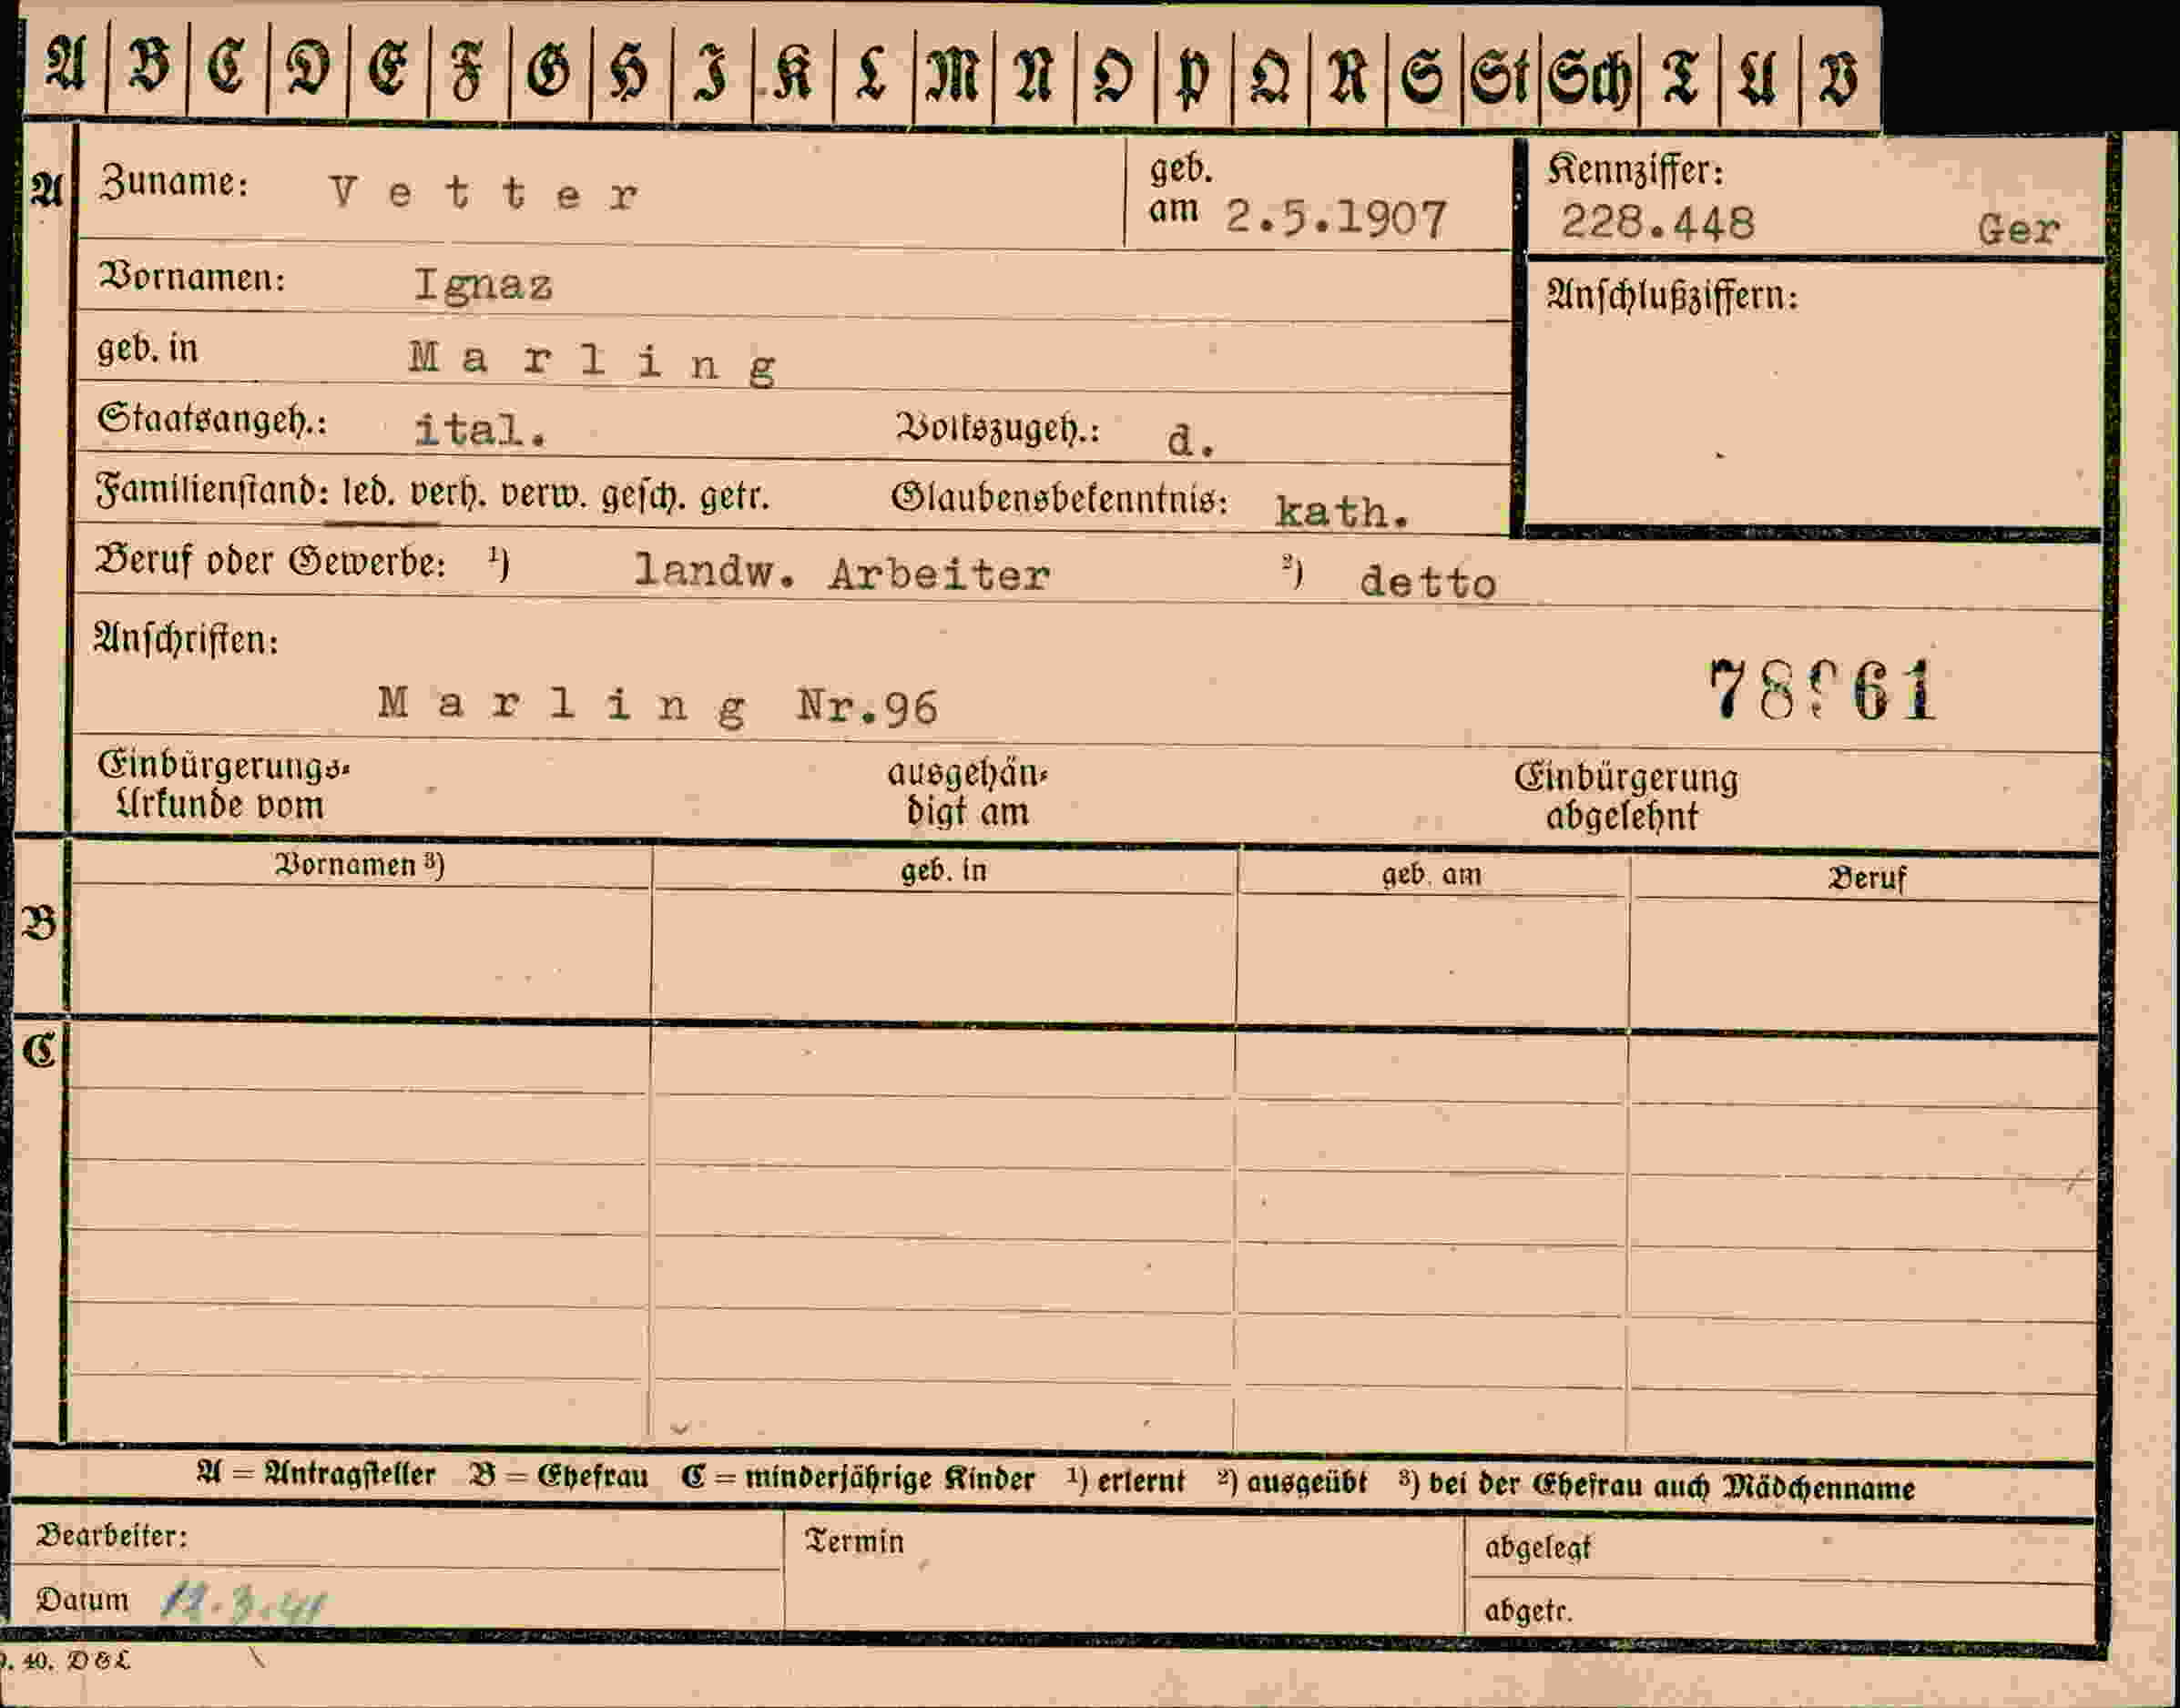 A B C D E F G H I K L M N O P Q R S St Sch T U V
A Zuname: Vetter geb. am 2.5.1907 Kennziffer: 228.448 Ger
Vornamen: Ignaz Anschlußziffern:
geb. in Marling
Staatsangeh.: ital. Volkszugeh.: d.
Familienstand: led. verh. verw. gesch. getr. Glaubensbekenntnis: kath.
Beruf oder Gewerbe: ¹) landw. Arbeiter ²) detto
Anschriften:
Marling Nr.96
Einbürgerungs- ausgehän- Einbürgerung
Urkunde vom digt am abgelehnt
Vornamen ³) geb. in geb. am Beruf
B
C
A = Antragsteller B = Ehefrau C = minderjährige Kinder ¹) erlernt ²) ausgeübt ³) bei der Ehefrau auch Mädchenname
Bearbeiter: Termin abgelegt
Datum abgetr.
40. D&L